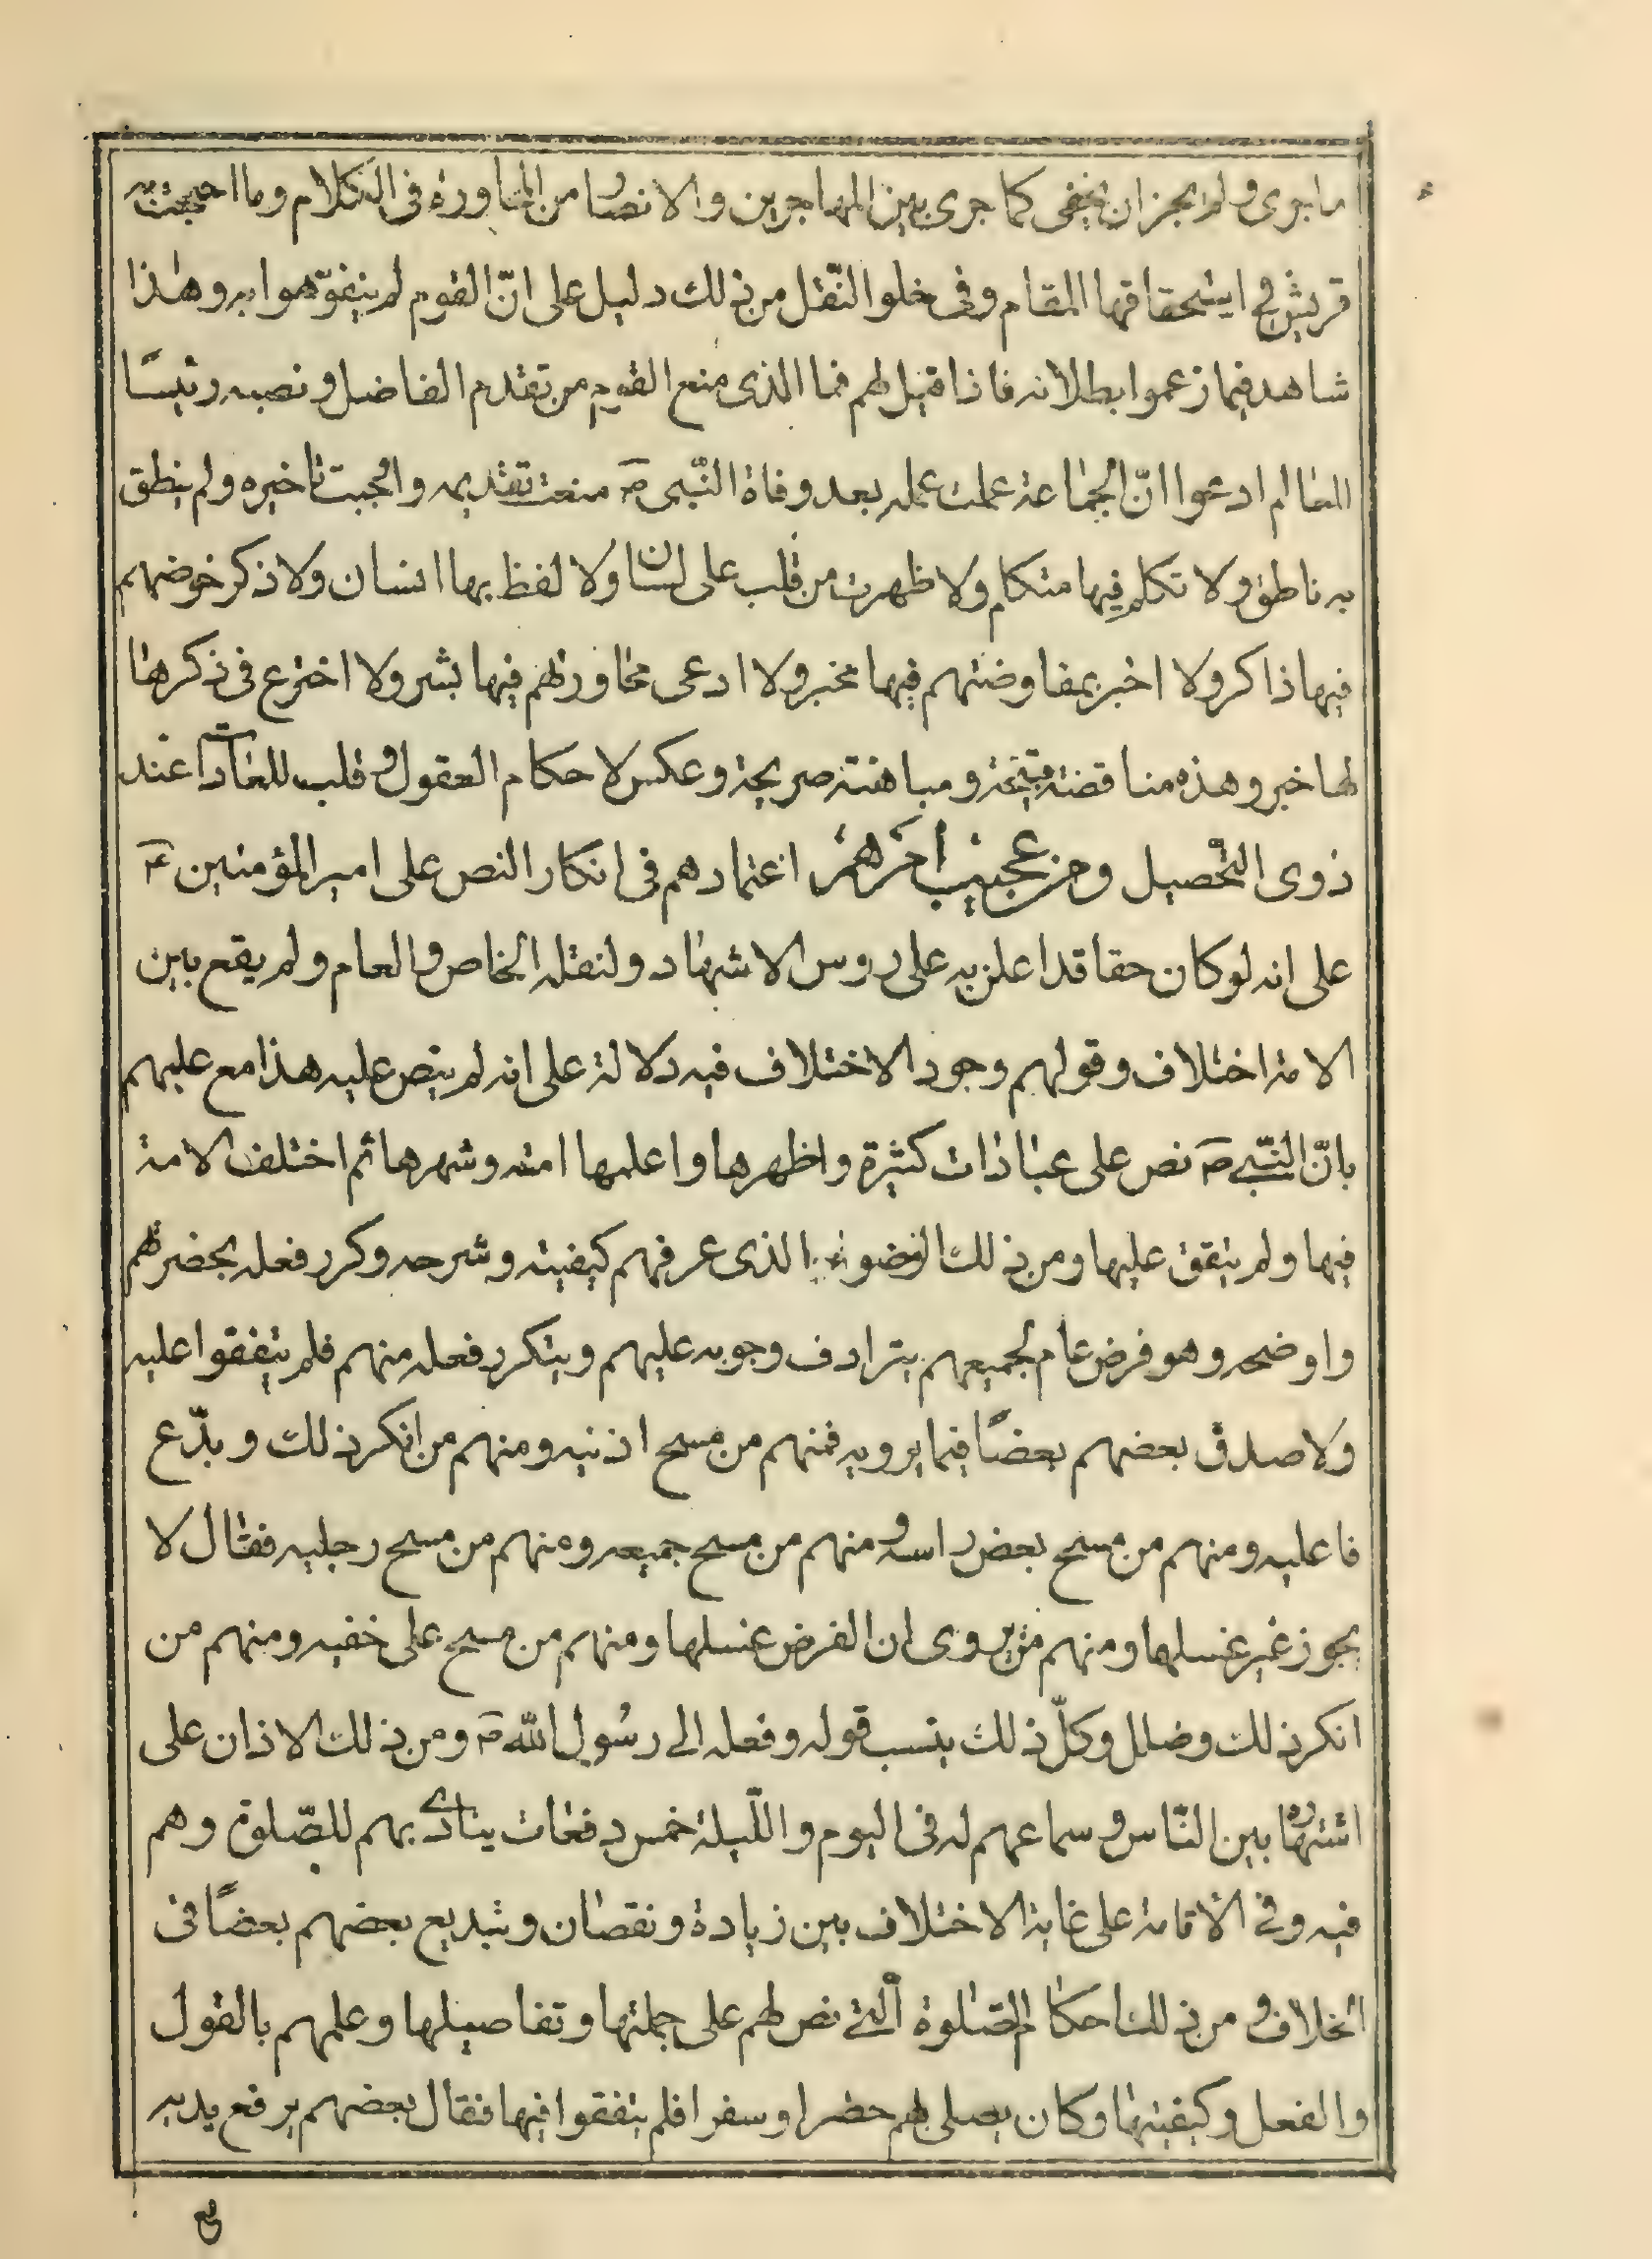 ما جرى ولم يجز ان يخفى كما جرى بين المهاجرين والانصار من المحاورة فى الكلام وما احتجت به
قريش فى استحقاقها المقام وفى خلو النّقل من ذلك دليل على انّ القوم لم يتفوّهوا به وهذا
شاهد فيما زعموا بطلانه فاذا قيل لهم فما الذى منع القوم من تقدم الفاضل ونصبه رئيسًا
للعالم ادعوا انّ الجماعة عملت عمله بعد وفاة النّبى ص منعت تقديمه واوجبت تاخيره ولم ينطق
به ناطق ولا تكلم فيها متكلم ولا ظهرت من قلب على لسان ولا لفظ بها انسان ولا ذكر خوضهم
فيها ذاكر ولا اخبر بمفاوضتهم فيها مخبر ولا ادعى محاورتهم فيها بشر ولا اخترع فى ذكرها
لها خبر وهذه مناقضة قبيحة ومباهتة صريحة وعكس لاحكام العقول وقلب للعادات عند
ذوى التّحصيل ومن عجيب امرهم اعتمادهم فى انكار النص على امير المؤمنين ع
على انه لو كان حقا قد اعلن به على روس الاشهاد ولنقله الخاص والعام ولم يقع بين
الامة اختلاف وقولهم وجود الاختلاف فيه دلالة على انه لم ينص عليه هذا مع علمهم
بانّ النّبى ص نص على عبادات كثيرة واظهرها واعلمها امته وشهرها ثم اختلف الامة
فيها ولم يتفق عليها ومن ذلك الوضوء الذى عرفهم كيفيته وشرحه وكرر فعله بحضرتهم
واوضحه وهو فرض عام لجميعهم يترادف وجوبه عليهم ويتكرر فعله منهم فلم يتفقوا عليه
ولا صدق بعضهم بعضًا فيما يرويه فمنهم من مسح اذنيه ومنهم من انكر ذلك وبدّع
فاعليه ومنهم من مسح بعض راسه ومنهم من مسح جميعه ومنهم من مسح رجليه فقال لا
يجوز غير غسلها ومنهم من يروى ان الفرض غسلها ومنهم من مسح على خفيه ومنهم من
انكر ذلك وضلل وكلّ ذلك ينسب قوله وفعله الى رسول الله ص ومن ذلك الاذان على
اشتهاره بين النّاس وسماعهم له فى اليوم واللّيلة خمس دفعات ينادى بهم للصّلوة وهم
فيه وفى الاقامة على غاية الاختلاف بين زيادة ونقصان وتبديع بعضهم بعضًا فى
الخلاف ومن ذلك احكام الصّلوة الّتى نص لهم على جملتها وتفاصيلها وعلمهم بالقول
والفعل وكيفيتها وكان يصلى بهم حضرا وسفرا فلم يتفقوا فيها فقال بعضهم برفع يديه